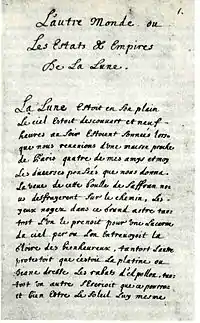 1.
L'autre Monde ou
Les Estats & Empires
De La Lune.
La Lune Estoit en Son plain
Le ciel Estoit descouvert et neuf
heures du Soir Estoient Sonnées lors
que nous revenions d'une maison proche
de Paris quatre de mes amys et moy
Les diverses pensées que nous donna
La veue de cette boulle de Saffran nou
us deffrayerent Sur le chemin, Les
yeux noyez dans ce Grand astre tan
tost L'un le prenoit pour une Lucarne
du ciel par ou L'on Entrevoyoit La
Gloire des bienheureux, tantost L'autre
protestoit que c'estoit La platine ou
Diane dresse Les rabats d'Apollon, tan
tost un autre S'escrioit que ce pourroit
Et bien Estre Le Soleil Luy mesme